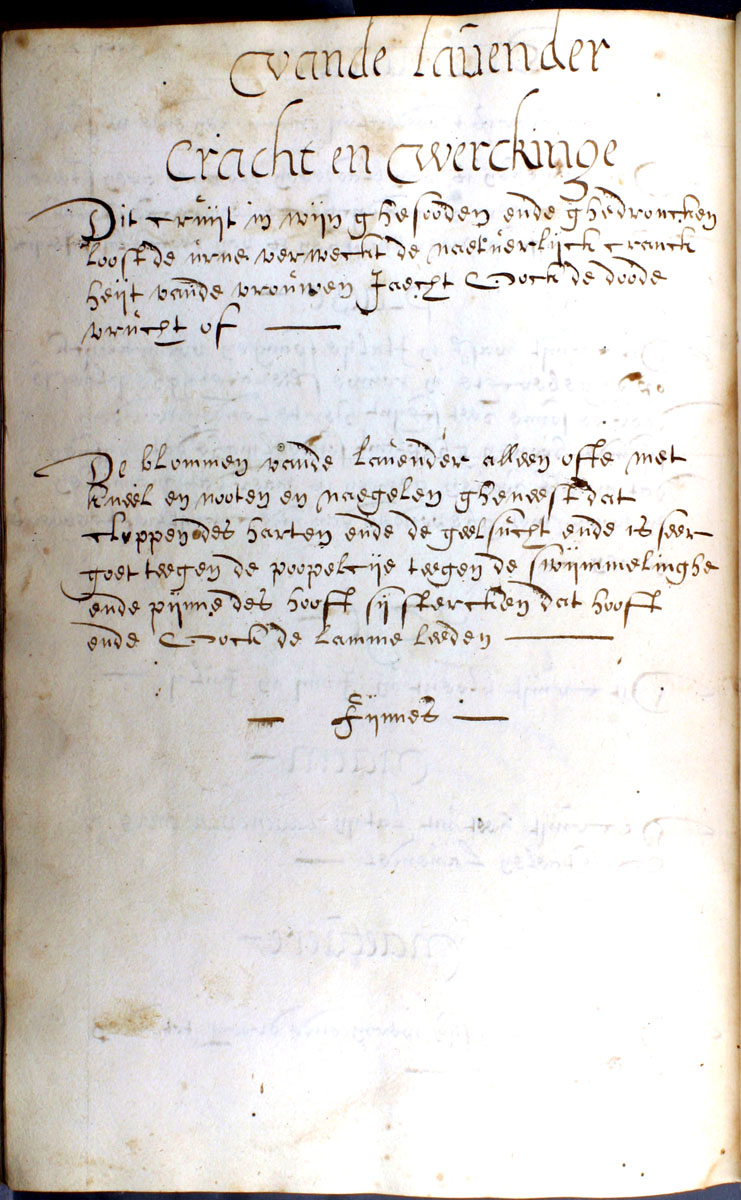 vande lavender
Cracht en werckinge
Dit cruijt in wijn ghesooden ende ghedroncken
loost de urine verweckt de natuerlijck cranck
heijt vande vrouwen Jaecht oock de doode
vrucht of
De blommen vande lavender alleen ofte met
kneel en nooten en naegelen gheneest dat
cloppen des harten ende de geelsucht ende is seer
goet teegen de poopelcije teegen de swijmmelinghe
ende pijnne des hooft sij stercken dat hooft
ende oock de lamme leeden
Fijnnes